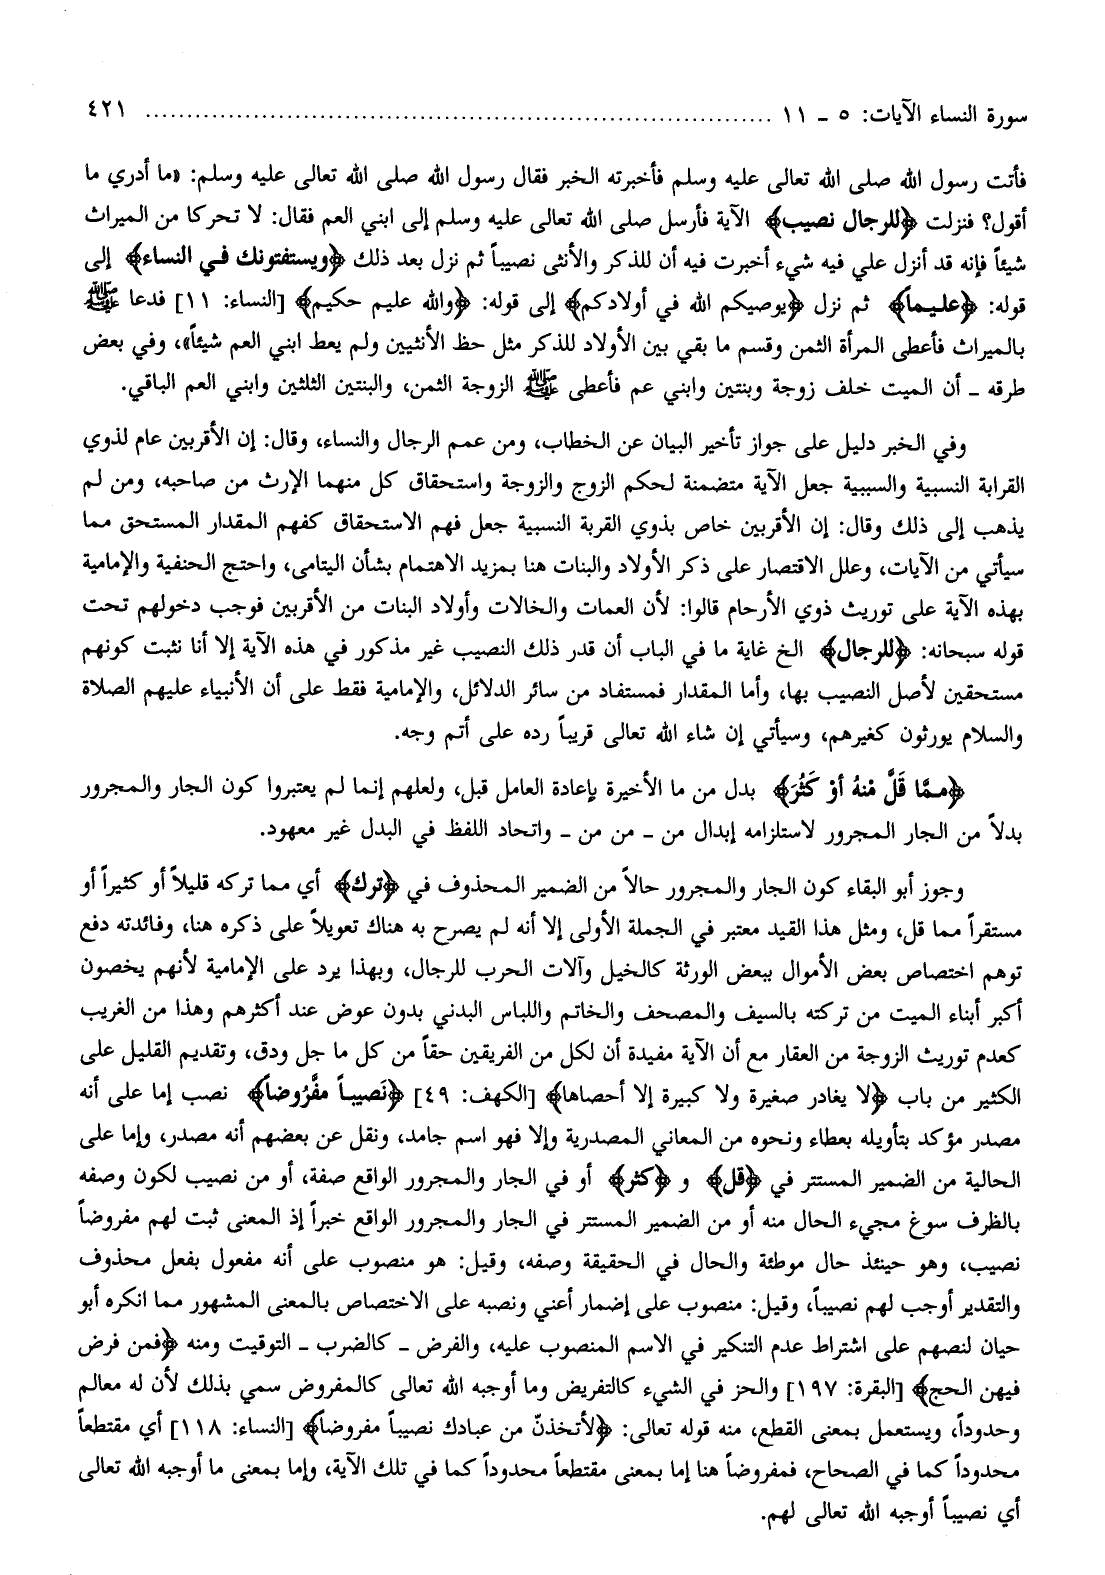 سورة النساء الآيات: ٥ ـ ١١ ........................................................................... ٤٢١
فأتت رسول الله صلى الله تعالى عليه وسلم فأخبرته الخبر فقال رسول الله صلى الله تعالى عليه وسلم: «ما أدري ما
أقول؟ فنزلت ﴿للرجال نصيب﴾ الآية فأرسل صلى الله تعالى عليه وسلم إلى ابني العم فقال: لا تحركا من الميراث
شيئاً فإنه قد أنزل علي فيه شيء أخبرت فيه أن للذكر والأنثى نصيباً ثم نزل بعد ذلك ﴿ويستفتونك في النساء﴾ إلى
قوله: ﴿عليماً﴾ ثم نزل ﴿يوصيكم الله في أولادكم﴾ إلى قوله: ﴿والله عليم حكيم﴾ [النساء: ١١] فدعا ﷺ
بالميراث فأعطى المرأة الثمن وقسم ما بقي بين الأولاد للذكر مثل حظ الأنثيين ولم يعط ابني العم شيئاً»، وفي بعض
طرقه ـ أن الميت خلف زوجة وبنتين وابني عم فأعطى ﷺ الزوجة الثمن، والبنتين الثلثين وابني العم الباقي.
وفي الخبر دليل على جواز تأخير البيان عن الخطاب، ومن عمم الرجال والنساء، وقال: إن الأقربين عام لذوي
القرابة النسبية والسببية جعل الآية متضمنة لحكم الزوج والزوجة واستحقاق كل منهما الإرث من صاحبه، ومن لم
يذهب إلى ذلك وقال: إن الأقربين خاص بذوي القربة النسبية جعل فهم الاستحقاق كفهم المقدار المستحق مما
سيأتي من الآيات، وعلل الاقتصار على ذكر الأولاد والبنات هنا بمزيد الاهتمام بشأن اليتامى، واحتج الحنفية والإمامية
بهذه الآية على توريث ذوي الأرحام قالوا: لأن العمات والخالات وأولاد البنات من الأقربين فوجب دخولهم تحت
قوله سبحانه: ﴿للرجال﴾ الخ غاية ما في الباب أن قدر ذلك النصيب غير مذكور في هذه الآية إلا أنا نثبت كونهم
مستحقين لأصل النصيب بها، وأما المقدار فمستفاد من سائر الدلائل، والإمامية فقط على أن الأنبياء عليهم الصلاة
والسلام يورثون كغيرهم، وسيأتي إن شاء الله تعالى قريباً رده على أتم وجه.
﴿ممَّا قَلَّ مْنهُ أوْ كَثُرَ﴾ بدل من ما الأخيرة بإعادة العامل قبل، ولعلهم إنما لم يعتبروا كون الجار والمجرور
بدلاً من الجار المجرور لاستلزامه إبدال من ـ من من ـ واتحاد اللفظ في البدل غير معهود.
وجوز أبو البقاء كون الجار والمجرور حالاً من الضمير المحذوف في ﴿ترك﴾ أي مما تركه قليلاً أو كثيراً أو
مستقراً مما قل، ومثل هذا القيد معتبر في الجملة الأولى إلا أنه لم يصرح به هناك تعويلاً على ذكره هنا، وفائدته دفع
توهم اختصاص بعض الأموال ببعض الورثة كالخيل وآلات الحرب للرجال، وبهذا يرد على الإمامية لأنهم يخصون
أكبر أبناء الميت من تركته بالسيف والمصحف والخاتم واللباس البدني بدون عوض عند أكثرهم وهذا من الغريب
كعدم توريث الزوجة من العقار مع أن الآية مفيدة أن لكل من الفريقين حقاً من كل ما جل ودق، وتقديم القليل على
الكثير من باب ﴿لا يغادر صغيرة ولا كبيرة إلا أحصاها﴾ [الكهف: ٤٩] ﴿نَصيباً مفْرُوضاً﴾ نصب إما على أنه
مصدر مؤكد بتأويله بعطاء ونحوه من المعاني المصدرية وإلا فهو اسم جامد، ونقل عن بعضهم أنه مصدر، وإما على
الحالية من الضمير المستتر في ﴿قل﴾ و ﴿كثر﴾ أو في الجار والمجرور الواقع صفة، أو من نصيب لكون وصفه
بالظرف سوغ مجيء الحال منه أو من الضمير المستتر في الجار والمجرور الواقع خبراً إذ المعنى ثبت لهم مفروضاً
نصيب، وهو حينئذ حال موطئة والحال في الحقيقة وصفه، وقيل: هو منصوب على أنه مفعول بفعل محذوف
والتقدير أوجب لهم نصيباً، وقيل: منصوب على إضمار أعني ونصبه على الاختصاص بالمعنى المشهور مما انكره أبو
حيان لنصهم على اشتراط عدم التنكير في الاسم المنصوب عليه، والفرض ـ كالضرب ـ التوقيت ومنه ﴿فمن فرض
فيهن الحج﴾ [البقرة: ١٩٧] والحز في الشيء كالتفريض وما أوجبه الله تعالى كالمفروض سمي بذلك لأن له معالم
وحدوداً، ويستعمل بمعنى القطع، منه قوله تعالى: ﴿لأتخذنّ من عبادك نصيباً مفروضاً﴾ [النساء: ١١٨] أي مقتطعاً
محدوداً كما في الصحاح، فمفروضاً هنا إما بمعنى مقتطعاً محدوداً كما في تلك الآية، وإما بمعنى ما أوجبه الله تعالى
أي نصيباً أوجبه الله تعالى لهم.